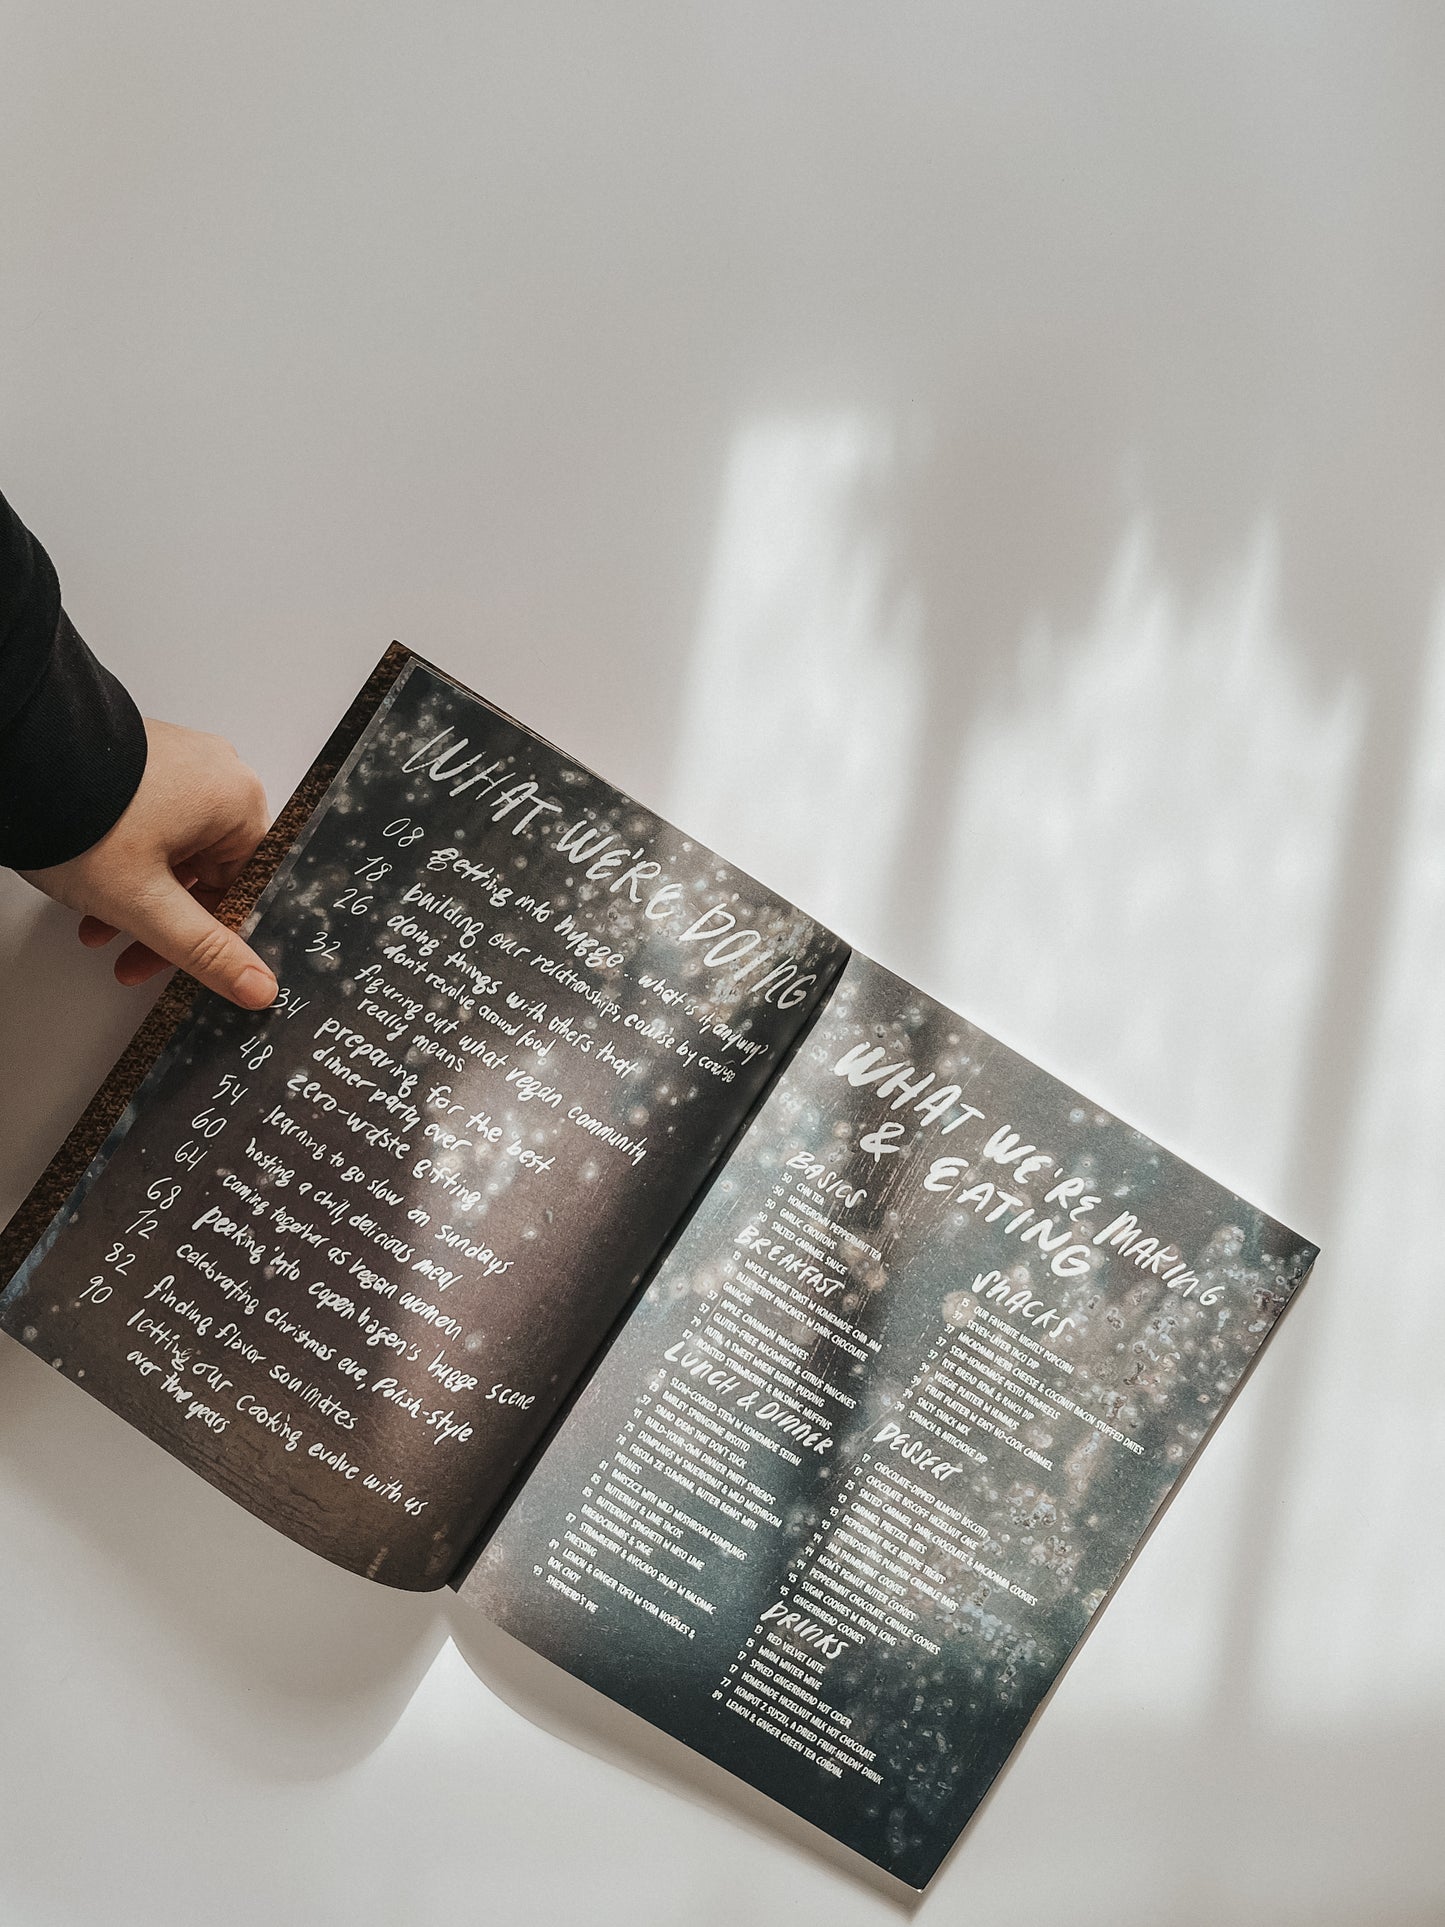 WHAT WE'RE DOING
08 getting into hygge... what is it, anyway?
18 building our relationships, course by course
26 doing things with others that
don't revolve around food
32 figuring out what vegan community
really means
34 preparing for the best
dinner party ever
48 zero-waste gifting
54 learning to go slow on sundays
60 hosting a chill, delicious meal
64 coming together as vegan women
68 peeking into copenhagen's hygge scene
72 celebrating christmas eve, Polish-style
82 finding flavor soulmates
90 letting our cooking evolve with us
over the years
WHAT WE'RE MAKING
& EATING
BASICS
50 CHN TEA
50 HOMEGROWN PEPPERMINT TEA
50 GARLIC CROUTONS
50 SALTED CARAMEL SAUCE
BREAKFAST
13 WHOLE WHEAT TOAST W HOMEMADE CHIA JAM
27 BLUEBERRY PANCAKES W DARK CHOCOLATE
GANACHE
57 APPLE CINNAMON PANCAKES
57 GLUTEN-FREE BUCKWHEAT & CITRUS PANCAKES
79 KUTIA, A SWEET WHEAT BERRY PUDDING
87 ROASTED STRAWBERRY & BALSAMIC MUFFINS
LUNCH & DINNER
15 SLOW-COOKED STEW W HOMEMADE SEITAN
23 BARLEY SPRINGTIME RISOTTO
37 SALAD IDEAS THAT DON'T SUCK
41 BUILD-YOUR-OWN DINNER PARTY SPREADS
75 DUMPLINGS W SAUERKRAUT & WILD MUSHROOM
78 FASOLA ZE SLIWKAMI, BUTTER BEANS WITH
PRUNES
81 BARSZCZ WITH WILD MUSHROOM DUMPLINGS
85 BUTTERNUT & LIME TACOS
85 BUTTERNUT SPAGHETTI W MISO LIME
BREADCRUMBS & SAGE
87 STRAWBERRY & AVOCADO SALAD W BALSAMIC
DRESSING
89 LEMON & GINGER TOFU W SOBA NOODLES &
BOK CHOY
93 SHEPHERD'S PIE
SNACKS
15 OUR FAVORITE NIGHTLY POPCORN
37 SEVEN-LAYER TACO DIP
37 MACADAMIA HERB CHEESE & COCONUT BACON STUFFED DATES
37 SEMI-HOMEMADE PESTO PINWHEELS
39 RYE BREAD BOWL & RANCH DIP
39 VEGGIE PLATTER W HUMMUS
39 FRUIT PLATTER W EASY NO-COOK CARAMEL
39 SALTY SNACK MIX
39 SPINACH & ARTICHOKE DIP
DESSERT
17 CHOCOLATE-DIPPED ALMOND BISCOTTI
17 CHOCOLATE BISCOFF HAZELNUT CAKE
25 SALTED CARAMEL DARK CHOCOLATE & MACADAMIA COOKIES
43 CARAMEL PRETZEL BITES
43 PEPPERMINT RICE KRISPIE TREATS
43 FRIENDSGIVING PUMPKIN CRUMBLE BARS
44 JAM THUMBPRINT COOKIES
44 MOM'S PEANUT BUTTER COOKIES
44 PEPPERMINT CHOCOLATE CRINKLE COOKIES
45 SUGAR COOKIES W ROYAL ICING
45 GINGERBREAD COOKIES
DRINKS
13 RED VELVET LATTE
15 WARM WINTER WINE
17 SPIKED GINGERBREAD HOT CIDER
17 HOMEMADE HAZELNUT MILK HOT CHOCOLATE
77 KOMPOT Z SUSZU, A DRIED FRUIT HOLIDAY DRINK
89 LEMON & GINGER GREEN TEA CORDIAL